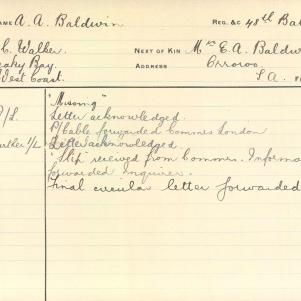 NAME A. A. Baldwin REG. &C 48th Bat
C. Walker. NEXT OF KIN Mrs E. A. Baldw
eaky Bay. ADDRESS Orroroo.
West Coast. S.A.
"Missing"
/L. Letter acknowledged.
P/Cable forwarded Commrs London
urther 1/L Letter acknowledged
"Slip" received from Commrs. Informa
forwarded Inquirer.
Final circular letter forwarded